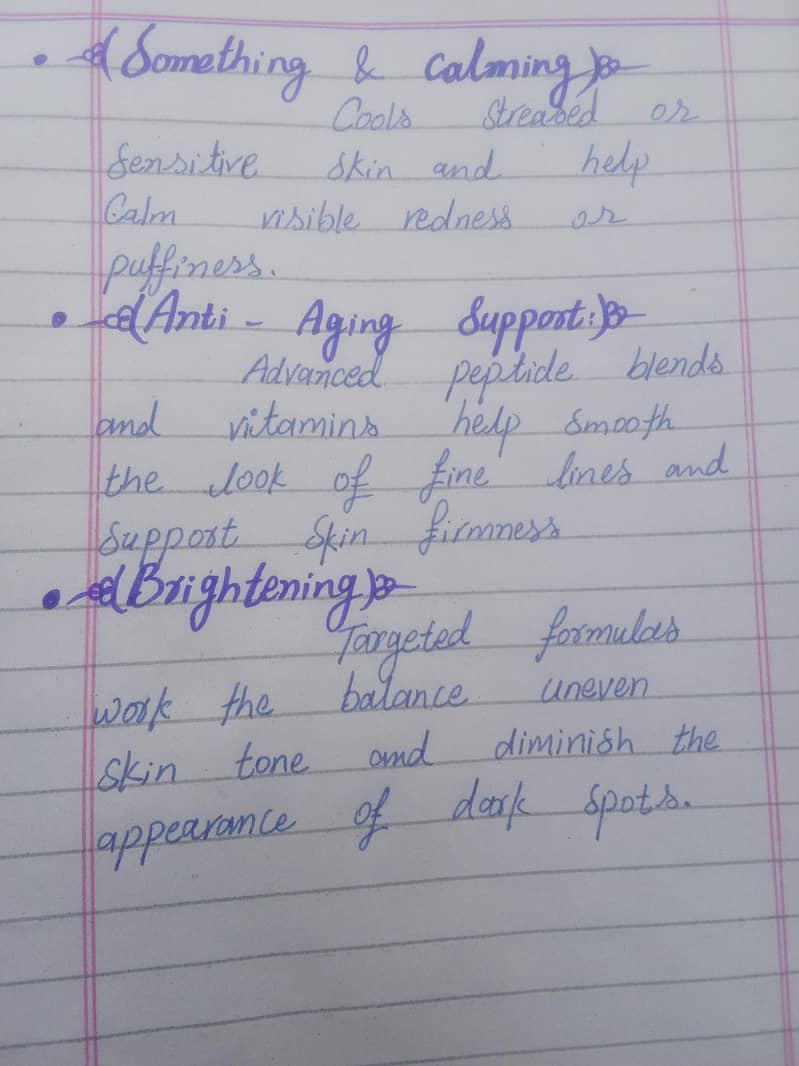 • (Something & Calming)
Cools streased or
sensitive skin and help
Calm visible redness or
puffiness.
• (Anti - Aging Support:)
Advanced peptide blends
and vitamins help smooth
the look of fine lines and
support skin firmness
• (Brightening)
Targeted formulas
work the balance uneven
skin tone and diminish the
appearance of dark spots.